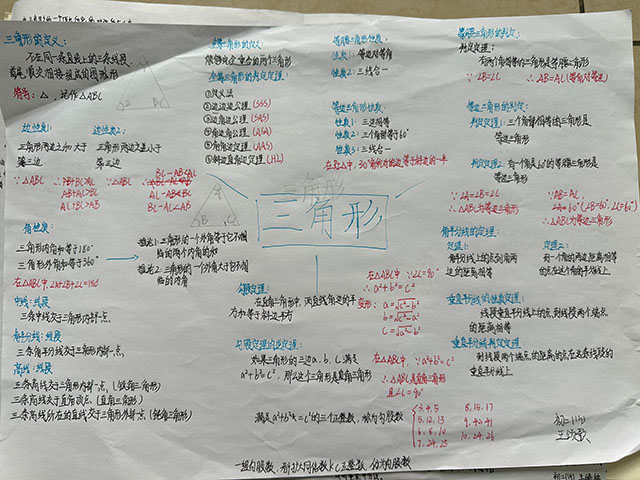 三角形的定义：
不在同一条直线上的三条线段
首尾顺次相接组成的图形
符号：△，记作△ABC
边性质1：
三角形两边之和大于
第三边
∵△ABC
∴AB+BC>AC
AB+AC>BC
AC+BC>AB
边性质2：
三角形两边之差小于
第三边
∵△ABC
BC-AC<AB
角性质：
三角形内角和等于180°
三角形外角和等于360°
推论1：三角形的一个外角等于它不相
邻的两个内角的和
推论2：三角形的一个外角大于它不相
邻的内角
中线：线段
三条中线交于三角形内部一点
角平分线：线段
三条角平分线交于三角形内部一点
高线：线段
三条高线交于三角形内部一点（锐角三角形）
三条高线交于直角顶点（直角三角形）
三条高线所在的直线交于三角形外部一点（钝角三角形）
全等三角形的定义：
能够完全重合的两个三角形
全等三角形的判定定理：
①定义法
②边边边公理（SSS）
③边角边公理（SAS）
④角边角公理（ASA）
⑤角角边定理（AAS）
⑥斜边直角边定理（HL）
三角形
三角形
等腰三角形性质：
性质1：等边对等角
性质2：三线合一
等边三角形性质
性质1：三边相等
性质2：三个角都等于60°
性质3：三线合一
在Rt△中，30°角所对的边等于斜边的一半
等腰三角形的判定：
判定定理：
有两个角相等的三角形是等腰三角形
∵∠B=∠C
∴AB=AC（等角对等边）
等边三角形的判定：
判定定理1：三个角都相等的三角形是
等边三角形
判定定理2：有一个角是60°的等腰三角形是
等边三角形
∵∠A=∠B=∠C
∴△ABC为等边三角形
∵AB=AC，
∠A=60°（∠B=60°，∠C=60°）
∴△ABC为等边三角形
角平分线的定理：
定理1：
角平分线上的点到角两
边的距离相等
定理2：
到一个角的两边距离相等
的点在这个角的平分线上
垂直平分线的性质定理：
线段垂直平分线上的点到线段两个端点
的距离相等
垂直平分线判定定理：
到线段两个端点的距离相等的点在这条线段的
垂直平分线上
勾股定理：
在直角三角形中，两直角边的平
方和等于斜边平方
在△ABC中 ∵∠C=90°
∴a²+b²=c²
变形：a=√c²-b²
b=√c²-a²
勾股定理的逆定理：
如果三角形的三边a，b，c，满足
a²+b²=c²，那么这个三角形是直角三角形
在△ABC中，∵a²+b²=c²
∴△ABC是直角三角形
且∠C=90°
满足a²+b²=c²的三个正整数，称为勾股数
3，4，5
5，12，13
6，8，10
7，24，25
8，15，17
9，40，41
10，24，26
一组勾股数，